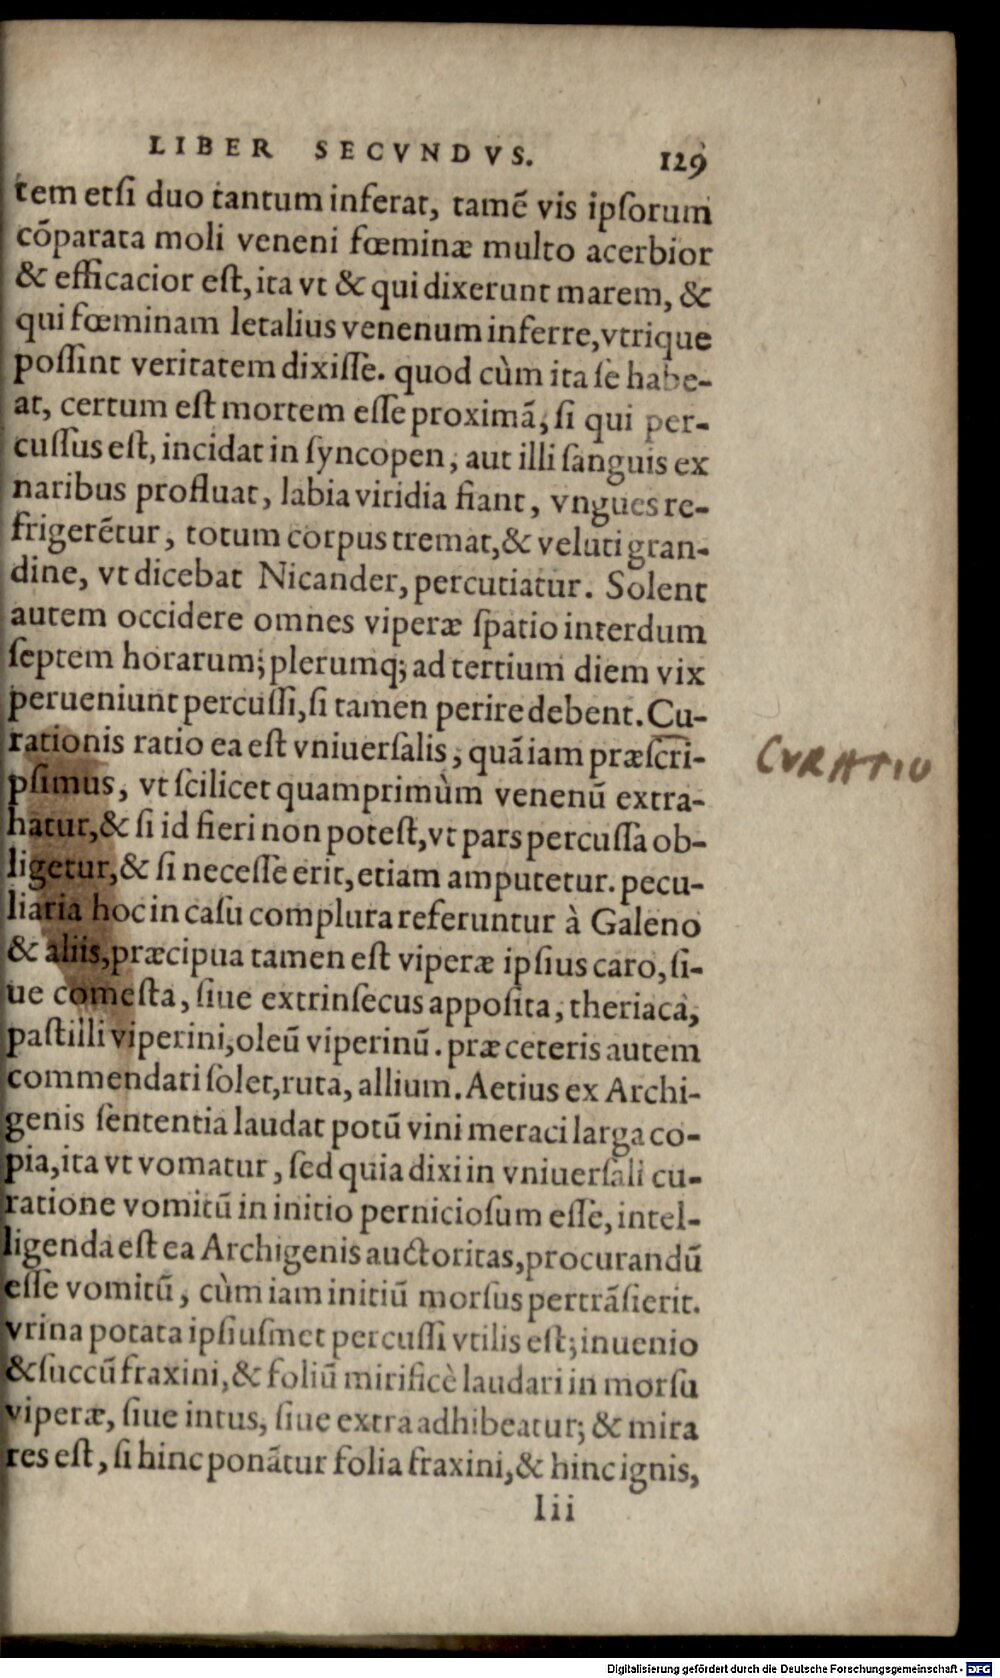 LIBER SECVNDVS. 129
tem etſi duo tantum inferat, tamē vis ipſorum
cōparata moli veneni fœminæ multo acerbior
& efficacior eſt, ita vt & qui dixerunt marem, &
qui fœminam letalius venenum inferre, vtrique
poſſint veritatem dixiſſe. quod cùm ita ſe habe-
at, certum eſt mortem eſſe proximā, ſi qui per-
cuſſus eſt, incidat in ſyncopen, aut illi ſanguis ex
naribus profluat, labia viridia fiant, vngues re-
frigerētur, totum corpus tremat, & veluti gran-
dine, vt dicebat Nicander, percutiatur. Solent
autem occidere omnes viperæ ſpatio interdum
ſeptem horarum; plerumq; ad tertium diem vix
perueniunt percuſſi, ſi tamen perire debent. Cu-
rationis ratio ea eſt vniuerſalis, quā iam præſcri-
CVRATIO
pſimus, vt ſcilicet quamprimùm venenū extra-
hatur, & ſi id fieri non poteſt, vt pars percuſſa ob-
ligetur, & ſi neceſſe erit, etiam amputetur. pecu-
liaria hoc in caſu complura referuntur à Galeno
& aliis, præcipua tamen eſt viperæ ipſius caro, ſi-
ue comeſta, ſiue extrinſecus appoſita, theriaca,
paſtilli viperini, oleū viperinū. præ ceteris autem
commendari ſolet, ruta, allium. Aetius ex Archi-
genis ſententia laudat potū vini meraci larga co-
pia, ita vt vomatur, ſed quia dixi in vniuerſali cu-
ratione vomitū in initio pernicioſum eſſe, intel-
ligenda eſt ea Archigenis auctoritas, procurandū
eſſe vomitū, cùm iam initiū morſus pertrāſierit.
vrina potata ipſiuſmet percuſſi vtilis eſt; inuenio
& ſuccū fraxini, & foliū mirificè laudari in morſu
viperæ, ſiue intus, ſiue extra adhibeatur; & mira
res eſt, ſi hinc ponātur folia fraxini, & hinc ignis,
Iii
Digitalisierung gefördert durch die Deutsche Forschungsgemeinschaft - DFG